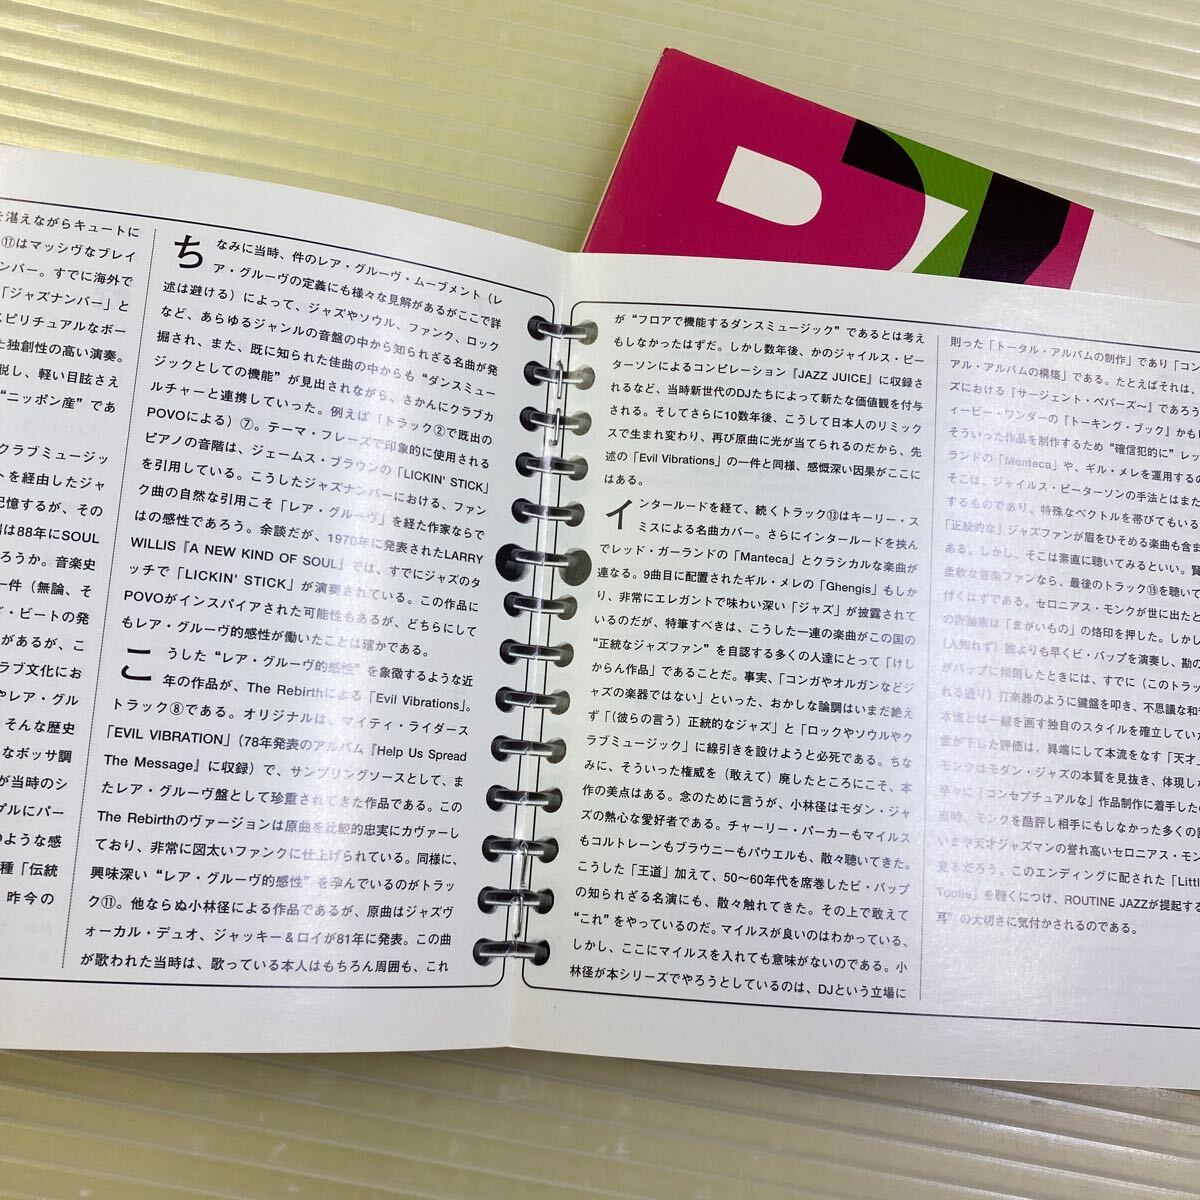 を湛えながらキュートに
⑰はマッシヴなブレイ
ンバー。すでに海外で
「ジャズナンバー」と
スピリチュアルなボー
た独創性の高い演奏。
脱し、軽い目眩さえ
“ニッポン産”であ
クラブミュージッ
トを経由したジャ
記憶するが、その
場は88年にSOUL
ろうか。音楽史
一件（無論、そ
ド・ビートの発
があるが、こ
ラブ文化にお
やレア・グル
そんな歴史
なボッサ調
が当時のシ
プルにバー
のような感
種「伝統
昨今の
ちなみに当時、件のレア・グルーヴ・ムーブメント（レ
ア・グルーヴの定義にも様々な見解があるがここで詳
述は避ける）によって、ジャズやソウル、ファンク、ロック
など、あらゆるジャンルの音盤の中から知られざる名曲が発
掘され、また、既に知られた佳曲の中からも“ダンスミュー
ジックとしての機能”が見出されながら、さかんにクラブカ
ルチャーと連携していった。例えば（トラック②で既出の
POVOによる）⑦。テーマ・フレーズで印象的に使用される
ピアノの音階は、ジェームス・ブラウンの「LICKIN' STICK」
を引用している。こうしたジャズナンバーにおける、ファン
ク曲の自然な引用こそ「レア・グルーヴ」を経た作家ならで
はの感性であろう。余談だが、1970年に発表されたLARRY
WILLIS『A NEW KIND OF SOUL』では、すでにジャズのタ
ッチで「LICKIN' STICK」が演奏されている。この作品に
POVOがインスパイアされた可能性もあるが、どちらにして
もレア・グルーヴ的感性が働いたことは確かである。
こうした“レア・グルーヴ的感性”を象徴するような近
年の作品が、The Rebirthによる「Evil Vibrations」。
トラック⑧である。オリジナルは、マイティ・ライダース
「EVIL VIBRATION」（78年発表のアルバム『Help Us Spread
The Message』に収録）で、サンプリングソースとして、ま
たレア・グルーヴ盤として珍重されてきた作品である。この
The Rebirthのヴァージョンは原曲を比較的忠実にカヴァーし
ており、非常に図太いファンクに仕上げられている。同様に、
興味深い“レア・グルーヴ的感性”を孕んでいるのがトラッ
ク⑪。他ならぬ小林径による作品であるが、原曲はジャズヴ
ォーカル・デュオ、ジャッキー＆ロイが81年に発表。この曲
が歌われた当時は、歌っている本人はもちろん周囲も、これ
が“フロアで機能するダンスミュージック”であるとは考え
もしなかったはずだ。しかし数年後、かのジャイルス・ピー
ターソンによるコンピレーション『JAZZ JUICE』に収録さ
れるなど、当時新世代のDJたちによって新たな価値観を付与
される。そしてさらに10数年後、こうして日本人のリミック
スで生まれ変わり、再び原曲に光が当てられるのだから、先
述の「Evil Vibrations」の一件と同様、感慨深い因果がここに
はある。
インタールードを経て、続くトラック⑬はキーリー・ス
ミスによる名曲カバー。さらにインタールードを挟ん
でレッド・ガーランドの「Manteca」とクラシカルな楽曲が
連なる。9曲目に配置されたギル・メレの「Ghengis」もしか
り、非常にエレガントで味わい深い「ジャズ」が披露されて
いるのだが、特筆すべきは、こうした一連の楽曲がこの国の
“正統なジャズファン”を自認する多くの人達にとって「けし
からん作品」であることだ。事実、「コンガやオルガンなどジ
ャズの楽器ではない」といった、おかしな論調はいまだ絶え
ず「（彼らの言う）正統的なジャズ」と「ロックやソウルやク
ラブミュージック」に線引きを設けようと必死である。ちな
みに、そういった権威を（敢えて）廃したところにこそ、本
作の美点はある。念のために言うが、小林径はモダン・ジャ
ズの熱心な愛好者である。チャーリー・パーカーもマイルス
もコルトレーンもブラウニーもパウエルも、散々聴いてきた。
こうした「王道」加えて、50〜60年代を席巻したビ・バップ
の知られざる名演にも、散々触れてきた。その上で敢えて
“これ”をやっているのだ。マイルスが良いのはわかっている、
しかし、ここにマイルスを入れても意味がないのである。小
林径が本シリーズでやろうとしているのは、DJという立場に
則った「トータル・アルバムの制作」であり「コン
アル・アルバムの構築」である。たとえばそれは、
ズにおける「サージェント・ペパーズ〜」であろう
ィービー・ワンダーの『トーキング・ブック』かもし
そういった作品を制作するため“確信犯的に”レッ
ランドの「Manteca」や、ギル・メレを運用するの
そこは、ジャイルス・ピーターソンの手法とはまた
するものであり、特殊なベクトルを帯びてもいる
「正統的な」ジャズファンが眉をひそめる楽曲も含ま
ある。しかし、そこは素直に聴いてみるといい。賢
柔軟な音楽ファンなら、最後のトラック⑲を聴いて
付くはずである。セロニアス・モンクが世に出たと
の評論家は「まがいもの」の烙印を押した。しかし
（人知れず）誰よりも早くビ・バップを演奏し、勘の
がバップに傾倒したときには、すでに（このトラッ
れる通り）打楽器のように鍵盤を叩き、不思議な和
本流とは一線を画す独自のスタイルを確立していた
世が下した評価は、異端にして本流をなす「天才」
モンクはモダン・ジャズの本質を見抜き、体現し
早々に「コンセプチュアルな」作品制作に着手したの
当時、モンクを酷評し相手にもしなかった多くの
いまや天才ジャズマンの誉れ高いセロニアス・モン
見るだろう。このエンディングに配された「Littl
Tootie」を聴くにつけ、ROUTINE JAZZが提起する
耳”の大切さに気付かされるのである。